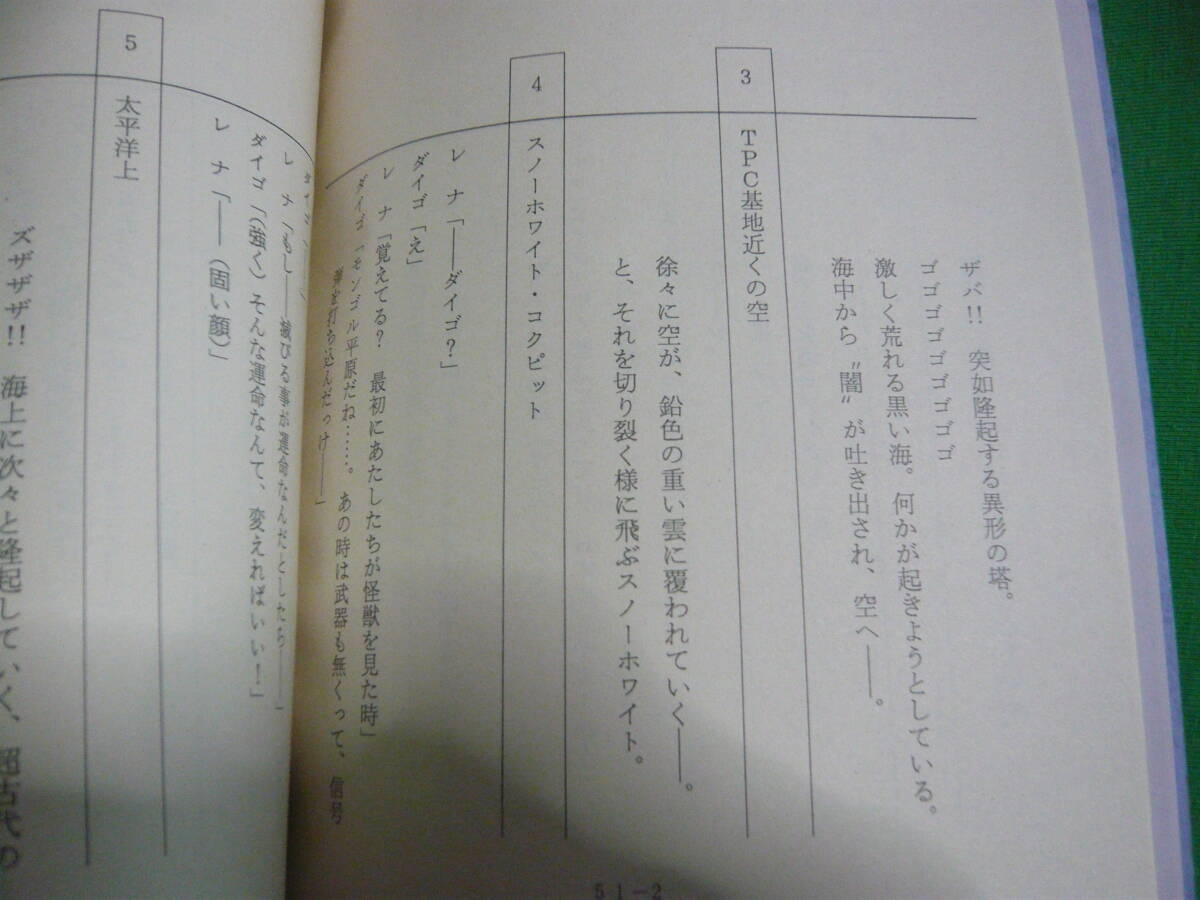 ザバ!! 突如隆起する異形の塔。
ゴゴゴゴゴゴゴゴゴ
激しく荒れる黒い海。何かが起きようとしている。
海中から〝闇〟が吐き出され、空へ――。
3 TPC基地近くの空
徐々に空が、鉛色の重い雲に覆われていく――。
と、それを切り裂く様に飛ぶスノーホワイト。
4 スノーホワイト・コクピット
レナ「――ダイゴ?」
ダイゴ「え」
レナ「覚えてる? 最初にあたしたちが怪獣を見た時」
ダイゴ「モンゴル平原だね……。あの時は武器も無くって、信号
弾を打ち込んだっけ――」
51－2
レナ「もし――滅びる事が運命なんだとしたら――」
ダイゴ「(強く)そんな運命なんて、変えればいい!」
レナ「――(固い顔)」
5 太平洋上
ズザザザ!! 海上に次々と隆起していく、超古代の